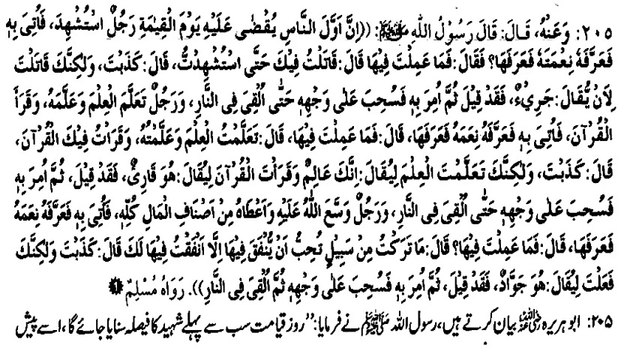 ٢٠٥: وَعَنْهُ، قَالَ: قَالَ رَسُوْلُ اللهِ ﷺ: ((اِنَّ اَوَّلَ النَّاسِ يُقْضٰى عَلَيْهِ يَوْمَ الْقِيٰمَةِ رَجُلٌ اسْتُشْهِدَ، فَاُتِىَ بِهٖ
فَعَرَّفَهٗ نِعْمَتَهٗ فَعَرَفَهَا؟ فَقَالَ: فَمَا عَمِلْتَ فِيْهَا قَالَ: قَاتَلْتُ فِيْكَ حَتَّى اسْتُشْهِدْتُّ، قَالَ: كَذَبْتَ، وَلٰكِنَّكَ قَاتَلْتَ
لِاَنْ يُّقَالَ: جَرِىْءٌ، فَقَدْ قِيْلَ ثُمَّ اُمِرَ بِهٖ فَسُحِبَ عَلٰى وَجْهِهٖ حَتّٰى اُلْقِىَ فِى النَّارِ، وَرَجُلٌ تَعَلَّمَ الْعِلْمَ وَعَلَّمَهٗ، وَقَرَاَ
الْقُرْآنَ، فَاُتِىَ بِهٖ فَعَرَّفَهٗ نِعَمَهٗ فَعَرَفَهَا، قَالَ: فَمَا عَمِلْتَ فِيْهَا، قَالَ: تَعَلَّمْتُ الْعِلْمَ وَعَلَّمْتُهٗ، وَقَرَاْتُ فِيْكَ الْقُرْآنَ،
قَالَ: كَذَبْتَ، وَلٰكِنَّكَ تَعَلَّمْتَ الْعِلْمَ لِيُقَالَ: اِنَّكَ عَالِمٌ وَقَرَاْتَ الْقُرْآنَ لِيُقَالَ: هُوَ قَارِئٌ، فَقَدْ قِيْلَ، ثُمَّ اُمِرَ بِهٖ
فَسُحِبَ عَلٰى وَجْهِهٖ حَتّٰى اُلْقِىَ فِى النَّارِ، وَرَجُلٌ وَسَّعَ اللّٰهُ عَلَيْهِ وَاَعْطَاهُ مِنْ اَصْنَافِ الْمَالِ كُلِّهٖ، فَاُتِىَ بِهٖ فَعَرَّفَهٗ نِعَمَهٗ
فَعَرَفَهَا، قَالَ: فَمَا عَمِلْتَ فِيْهَا؟ قَالَ: مَا تَرَكْتُ مِنْ سَبِيْلٍ تُحِبُّ اَنْ يُّنْفَقَ فِيْهَا اِلَّا اَنْفَقْتُ فِيْهَا لَكَ قَالَ: كَذَبْتَ وَلٰكِنَّكَ
فَعَلْتَ لِيُقَالَ: هُوَ جَوَّادٌ، فَقَدْ قِيْلَ، ثُمَّ اُمِرَ بِهٖ فَسُحِبَ عَلٰى وَجْهِهٖ ثُمَّ اُلْقِىَ فِى النَّارِ)). رَوَاهُ مُسْلِمٌ
٢٠٥: ابو ہریرہ رضی اللہ عنہ بیان کرتے ہیں، رسول اللہ ﷺ نے فرمایا: ”روز قیامت سب سے پہلے شہید کا فیصلہ سنایا جائے گا، اسے پیش